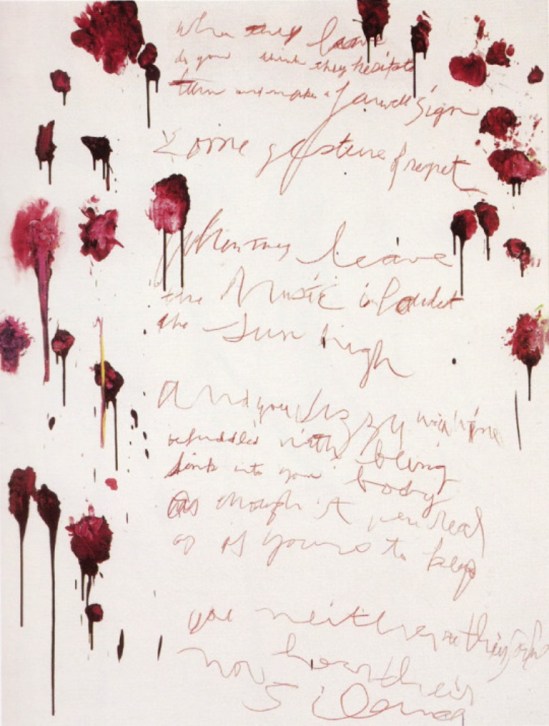 When they leave
do you think they hesitate
turn and make a farewell sign
Some gesture of regret
When they leave
the Music is loudest
the Sun high
and you dizzy with wine
befuddled with being
sink into your body
as though it were real
as if yours to keep
you neither see their
nor hear their
Silence